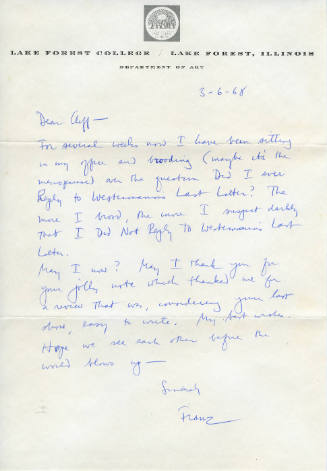 LAKE FOREST COLLEGE / LAKE FOREST, ILLINOIS
DEPARTMENT OF ART
3-6-68
Dear Cliff—
For several weeks now I have been sitting
in my office and brooding (maybe it's the
menopause) over the question Did I ever
Reply to Westermann's Last Letter? The
more I brood, the more I suspect darkly
that I Did Not Reply To Westermann's Last
Letter.
May I now? May I thank you for
your jolly note which thanked me for
a review that was, considering your last
show, easy to write. My best wishes.
Hope we see each other before the
world blows up—
Sincerely
Franz